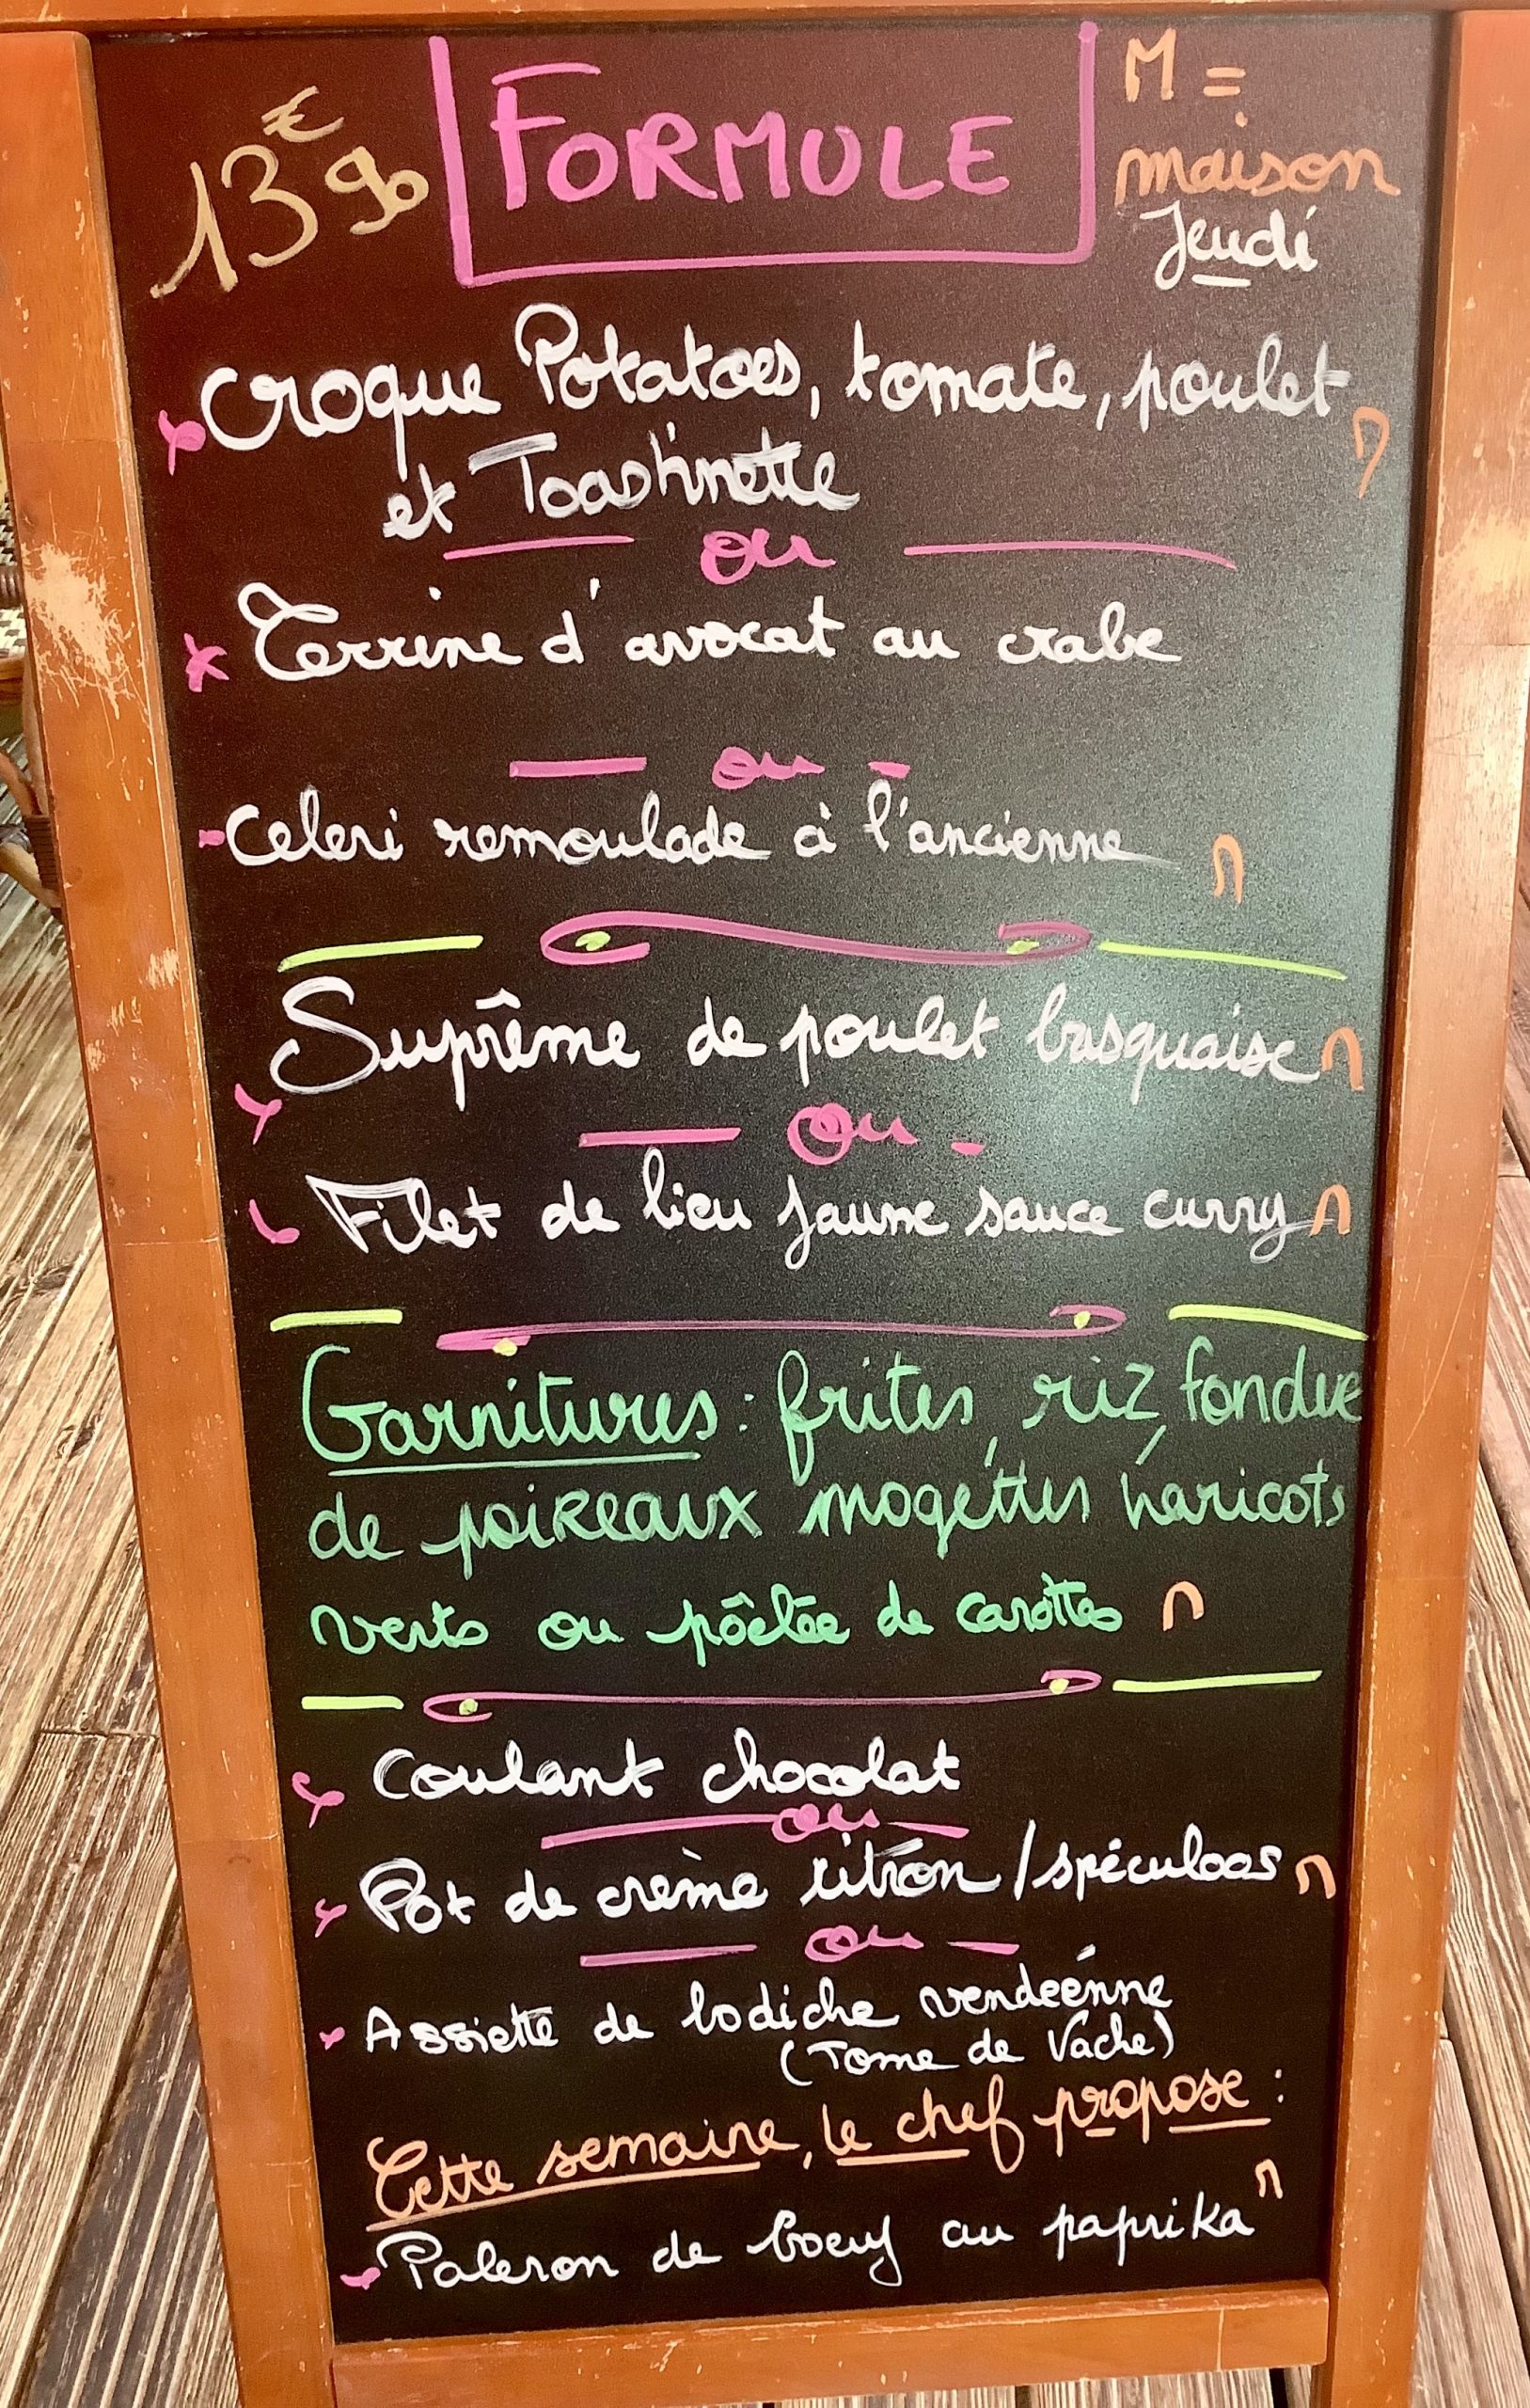 13€90
FORMULE
M =
maison
Jeudi
Croque Potatoes, tomate, poulet
et Toast'inette
ou
Terrine d'avocat au crabe
ou
Celeri remoulade à l'ancienne
Suprême de poulet basquaise
ou
Filet de lieu jaune sauce curry
Garnitures : frites, riz, fondue
de poireaux mogettes haricots
verts ou pôélée de carottes
Coulant chocolat
ou
Pot de crème citron / spéculoos
ou
Assiette de bodiche vendéenne
(Tome de Vache)
Cette semaine, le chef propose :
Paleron de boeuf au paprika